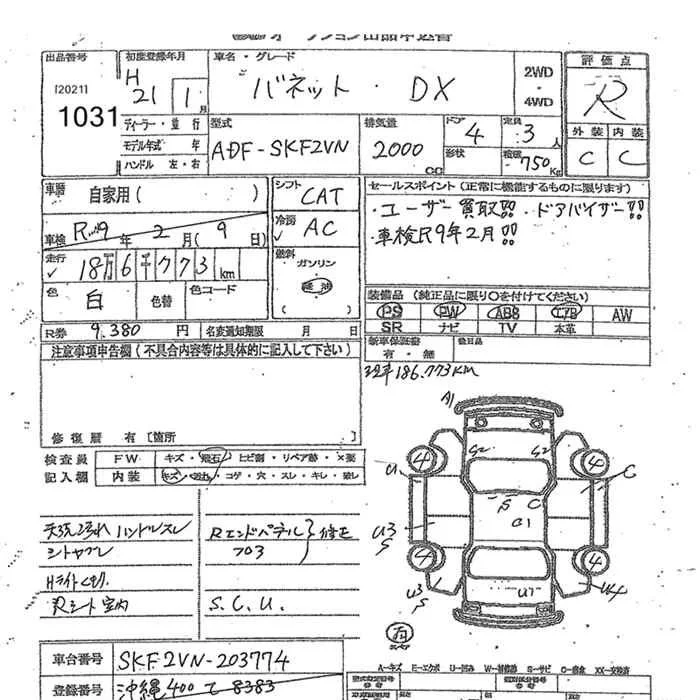 オークション出品申込書
出品番号 初度登録年月 車名・グレード 2WD・4WD 評価点
[2021] 1031
H 21 1月 バネット・DX R
ディーラー・並行 型式 排気量 ドア 4 定員 3人 外装 内装
モデル年式 年 ADF-SKF2VN 2000cc 形状 積載 750Kg C C
ハンドル 左・右
車歴 自家用( ) シフト CAT セールスポイント(正常に機能するものに限ります)
車検 R 9年 2月(9日) 冷房 AC ・ユーザー買取!!・ドアバイザー!!
・車検R9年2月!!
走行 18万6千773km 燃料 ガソリン
軽油
色 白 色替 色コード 装備品(純正品に限り○を付けてください)
PS PW ABS エアB AW
SR ナビ TV 本革
R券 9,380円 名変通知期限 月 日 新車保証書 有・無 後日品
注意事項申告欄(不具合内容等は具体的に記入して下さい)
現車186,773KM
修復歴 有〔箇所
検査員 FW キズ・飛石・ヒビ割・リペア跡・×要
記入欄 内装 キズ・汚れ・コゲ・穴・スレ・キレ・破レ
天張汚れ ハンドルスレ Rエンドパネル 修正
シートヤブレ フロア
Hライトくもり
Rシート室内 S.C.U.
A1
G2 G2
4 4
U C
S C
G1
U3 S
4 4
U3 S U1 W4
右
車台番号 SKF2VN-203774
登録番号 沖縄400て8383
A-キズ E-エクボ U-凹み W-補修跡 S-サビ C-腐食 XX-交換済
型式指定番号 類別区分番号